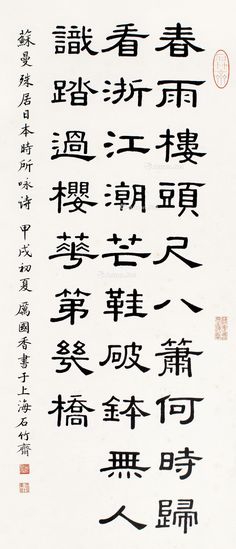 春雨樓頭尺八簫何時歸
看浙江潮芒鞋破鉢無人
識踏過櫻花第幾橋
蘇曼殊居日本時所咏诗 甲戌初夏 厲國香書于上海石竹齋